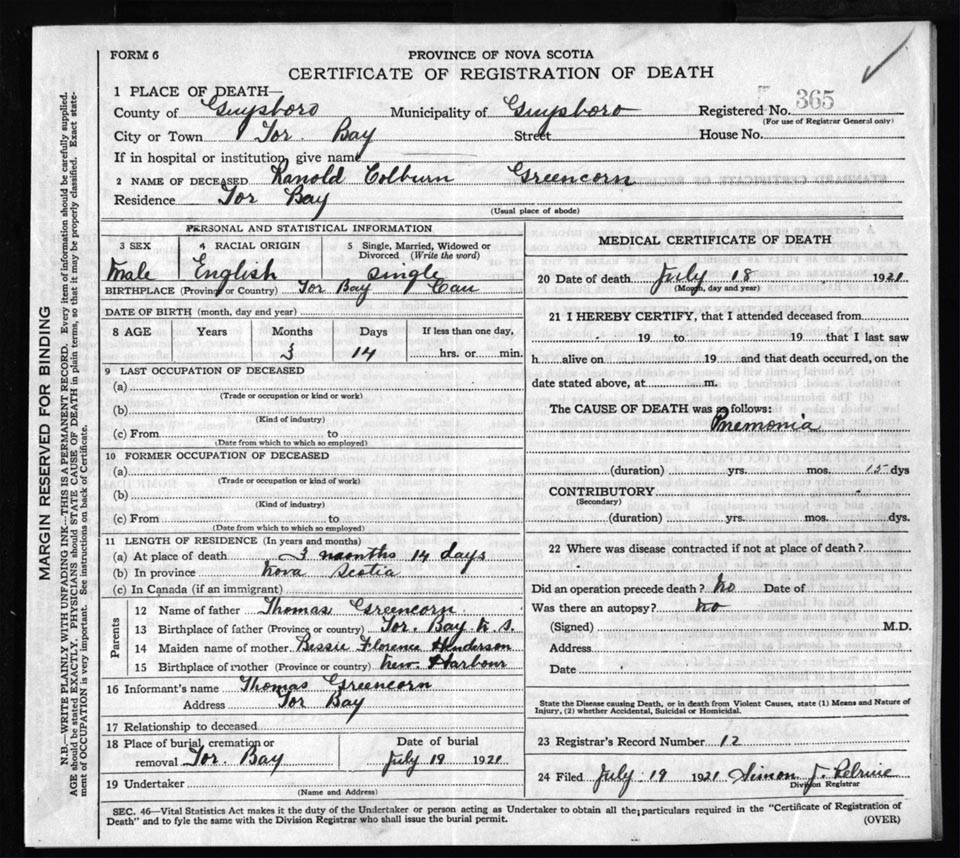 FORM 6
PROVINCE OF NOVA SCOTIA
CERTIFICATE OF REGISTRATION OF DEATH
1 PLACE OF DEATH—
County of Guysboro Municipality of Guysboro Registered No. 365
(For use of Registrar General only)
City or Town Tor Bay Street House No.
If in hospital or institution, give name
2 NAME OF DECEASED Ranold Colburn Greencorn
Residence Tor Bay
(Usual place of abode)
PERSONAL AND STATISTICAL INFORMATION
3 SEX 4 RACIAL ORIGIN 5 Single, Married, Widowed or Divorced. (Write the word)
Male English single
BIRTHPLACE (Province or Country) Tor Bay Can
DATE OF BIRTH (month, day and year)
8 AGE Years Months Days If less than one day,
3 14 hrs. or min.
9 LAST OCCUPATION OF DECEASED
(a)
(Trade or occupation or kind or work)
(b)
(Kind of industry)
(c) From to
(Date from which to which so employed)
10 FORMER OCCUPATION OF DECEASED
(a)
(Trade or occupation or kind of work)
(b)
(Kind of industry)
(c) From to
(Date from which to which so employed)
11 LENGTH OF RESIDENCE (In years and months)
(a) At place of death 3 months 14 days
(b) In province Nova Scotia
(c) In Canada (if an immigrant)
Parents
12 Name of father Thomas Greencorn
13 Birthplace of father (Province or country) Tor. Bay N. S.
14 Maiden name of mother Bessie Florence Henderson
15 Birthplace of mother (Province or country) New Harbour
16 Informant's name Thomas Greencorn
Address Tor Bay
17 Relationship to deceased
18 Place of burial, cremation or removal Tor. Bay Date of burial July 19 1921
19 Undertaker
(Name and Address)
MEDICAL CERTIFICATE OF DEATH
20 Date of death July 18 1921
(Month, day and year)
21 I HEREBY CERTIFY, that I attended deceased from
19 to 19 that I last saw
h alive on 19 and that death occurred, on the
date stated above, at m.
The CAUSE OF DEATH was as follows:
Pnemonia
(duration) yrs. mos. 15 dys
CONTRIBUTORY
(Secondary)
(duration) yrs. mos. dys.
22 Where was disease contracted if not at place of death?
Did an operation precede death? No Date of
Was there an autopsy? No
(Signed) M.D.
Address
Date
State the Disease causing Death, or in death from Violent Causes, state (1) Means and Nature of
Injury, (2) whether Accidental, Suicidal or Homicidal.
23 Registrar's Record Number 12
24 Filed July 19 1921 Simon J. Pelrine
Division Registrar
SEC. 46—Vital Statistics Act makes it the duty of the Undertaker or person acting as Undertaker to obtain all the particulars required in the "Certificate of Registration of
Death" and to fyle the same with the Division Registrar who shall issue the burial permit. (OVER)
MARGIN RESERVED FOR BINDING
N.B.—WRITE PLAINLY WITH UNFADING INK—THIS IS A PERMANENT RECORD. Every item of information should be carefully supplied.
AGE should be stated EXACTLY. PHYSICIANS should STATE CAUSE OF DEATH in plain terms, so that it may be properly classified. Exact state-
ment of OCCUPATION is very important. See instructions on back of Certificate.